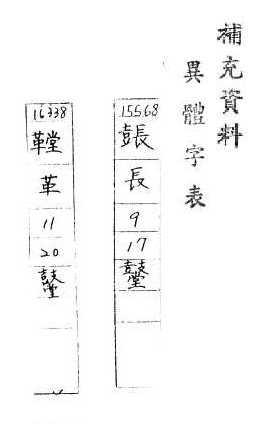 補充資料
異體字表
15568
長
9
17
鼞
16338
鞺
革
11
20
鼞